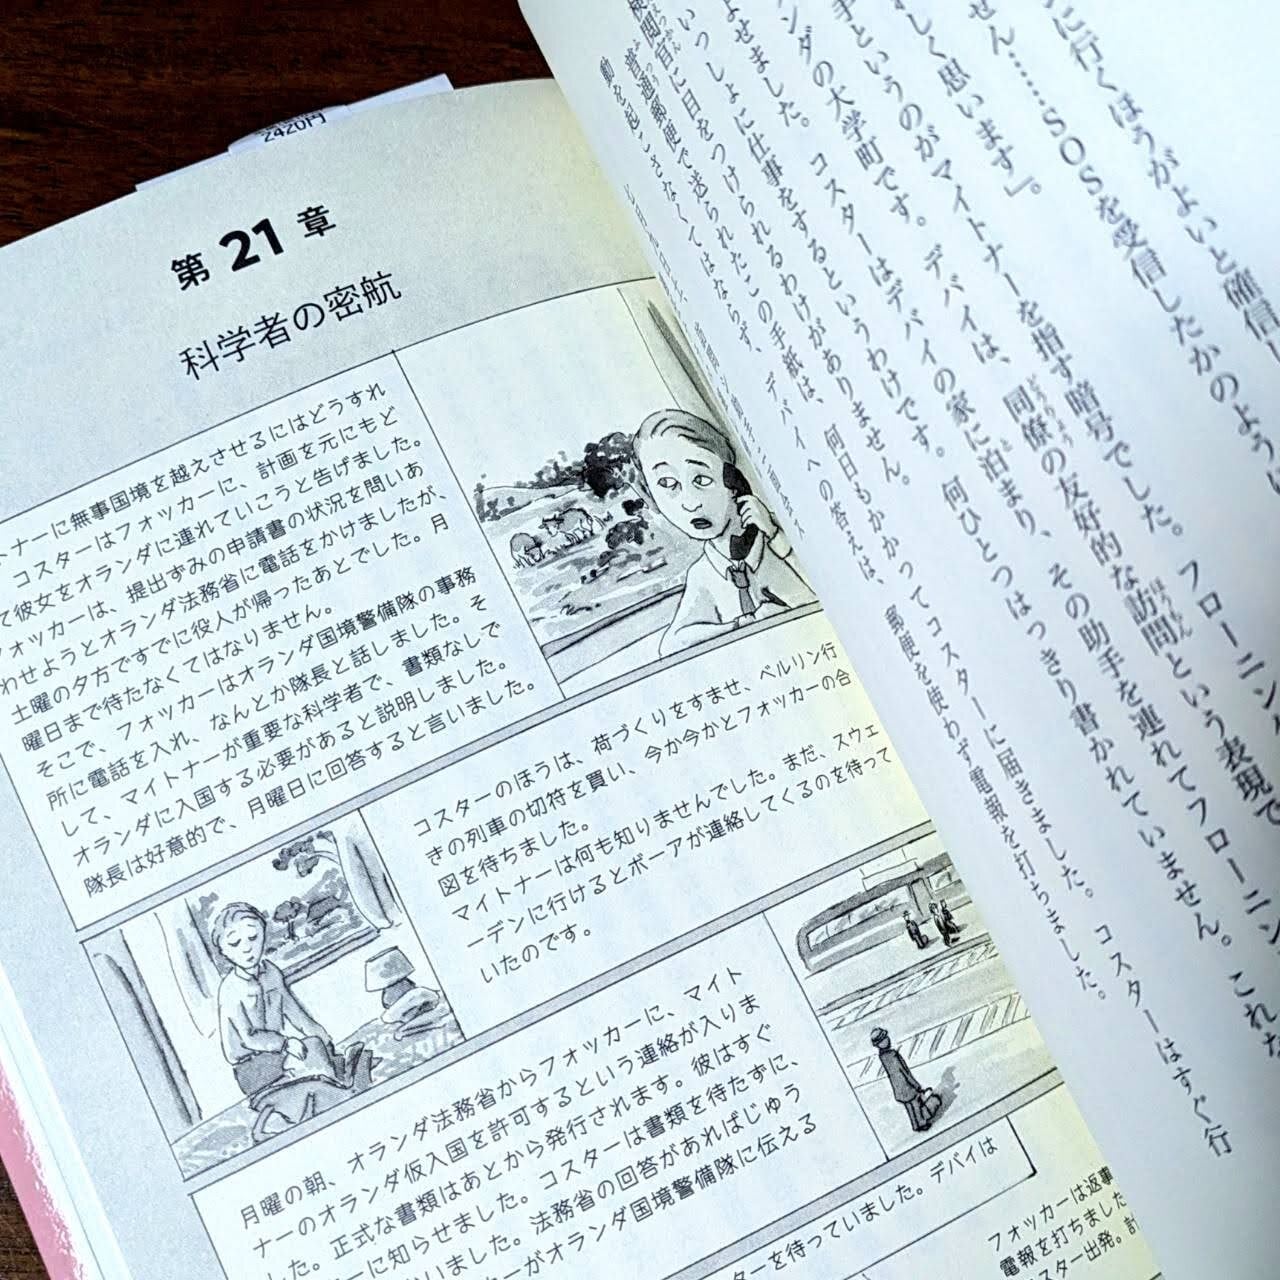 2420円
第21章
科学者の密航
トナーに無事国境を越えさせるにはどうすれ
コスターはフォッカーに、計画を元にもど
て彼女をオランダに連れていこうと告げました。
フォッカーは、提出ずみの申請書の状況を問いあ
わせようとオランダ法務省に電話をかけましたが、
土曜の夕方ですでに役人が帰ったあとでした。月
曜日まで待たなくてはなりません。
そこで、フォッカーはオランダ国境警備隊の事務
所に電話を入れ、なんとか隊長と話しました。そ
して、マイトナーが重要な科学者で、書類なしで
オランダに入国する必要があると説明しました。
隊長は好意的で、月曜日に回答すると言いました。
コスターのほうは、荷づくりをすませ、ベルリン行
きの列車の切符を買い、今か今かとフォッカーの合
図を待ちました。
マイトナーは何も知りませんでした。まだ、スウェ
ーデンに行けるとボーアが連絡してくるのを待って
いたのです。
月曜の朝、オランダ法務省からフォッカーに、マイト
ナーのオランダ仮入国を許可するという連絡が入りま
した。正式な書類はあとから発行されます。彼はすぐ
ーに知らせました。コスターは書類を待たずに、
いました。法務省の回答があればじゅう
ーがオランダ国境警備隊に伝える
ターを待っていました。デバイは
フォッカーは返事
電報を打ちました
スター出発。
に行くほうがよいと確信し
せん……SOSを受信したかのように
しく思います」。
手というのがマイトナーを指す暗号でした。フローニンゲ
ンダの大学町です。デバイは、同僚の友好的な訪問という表現で
よせました。コスターはデバイの家に泊まり、その助手を連れてフローニン
いっしょに仕事をするというわけです。何ひとつはっきり書かれていません。これな
検閲官に目をつけられるわけがありません。
普通郵便で送られたこの手紙は、何日もかかってコスターに届きました。コスターはすぐ行
動を起こさなくてはならず、デバイへの答えは、郵便を使わず電報を打ちました。